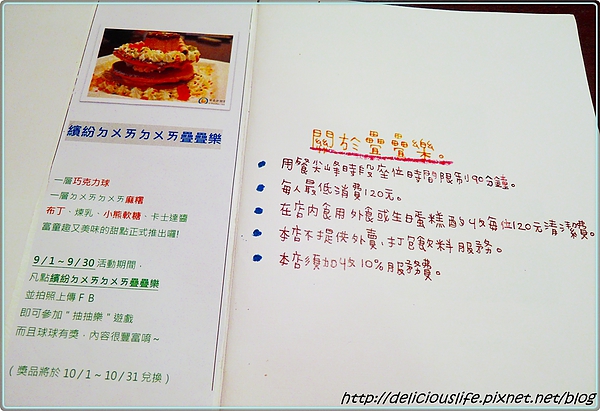 繽紛ㄉㄨㄞㄉㄨㄞ疊疊樂
一層巧克力球
一層ㄉㄨㄞㄉㄨㄞ麻糬
布丁、煉乳、小熊軟糖、卡士達醬
富童趣又美味的甜點正式推出囉!
9/1~9/30活動期間,
凡點繽紛ㄉㄨㄞㄉㄨㄞ疊疊樂
並拍照上傳FB
即可參加"抽抽樂"遊戲
而且球球有獎,內容很豐富唷~
(獎品將於10/1~10/31兌換)
關於疊疊樂。
用餐尖峰時段座位時間限制90分鐘。
每人最低消費120元。
在店內食用外食或生日蛋糕酌收每位120元清潔費。
本店不提供外賣、打包飲料服務。
本店須加收10%服務費。
http://deliciouslife.pixnet.net/blog